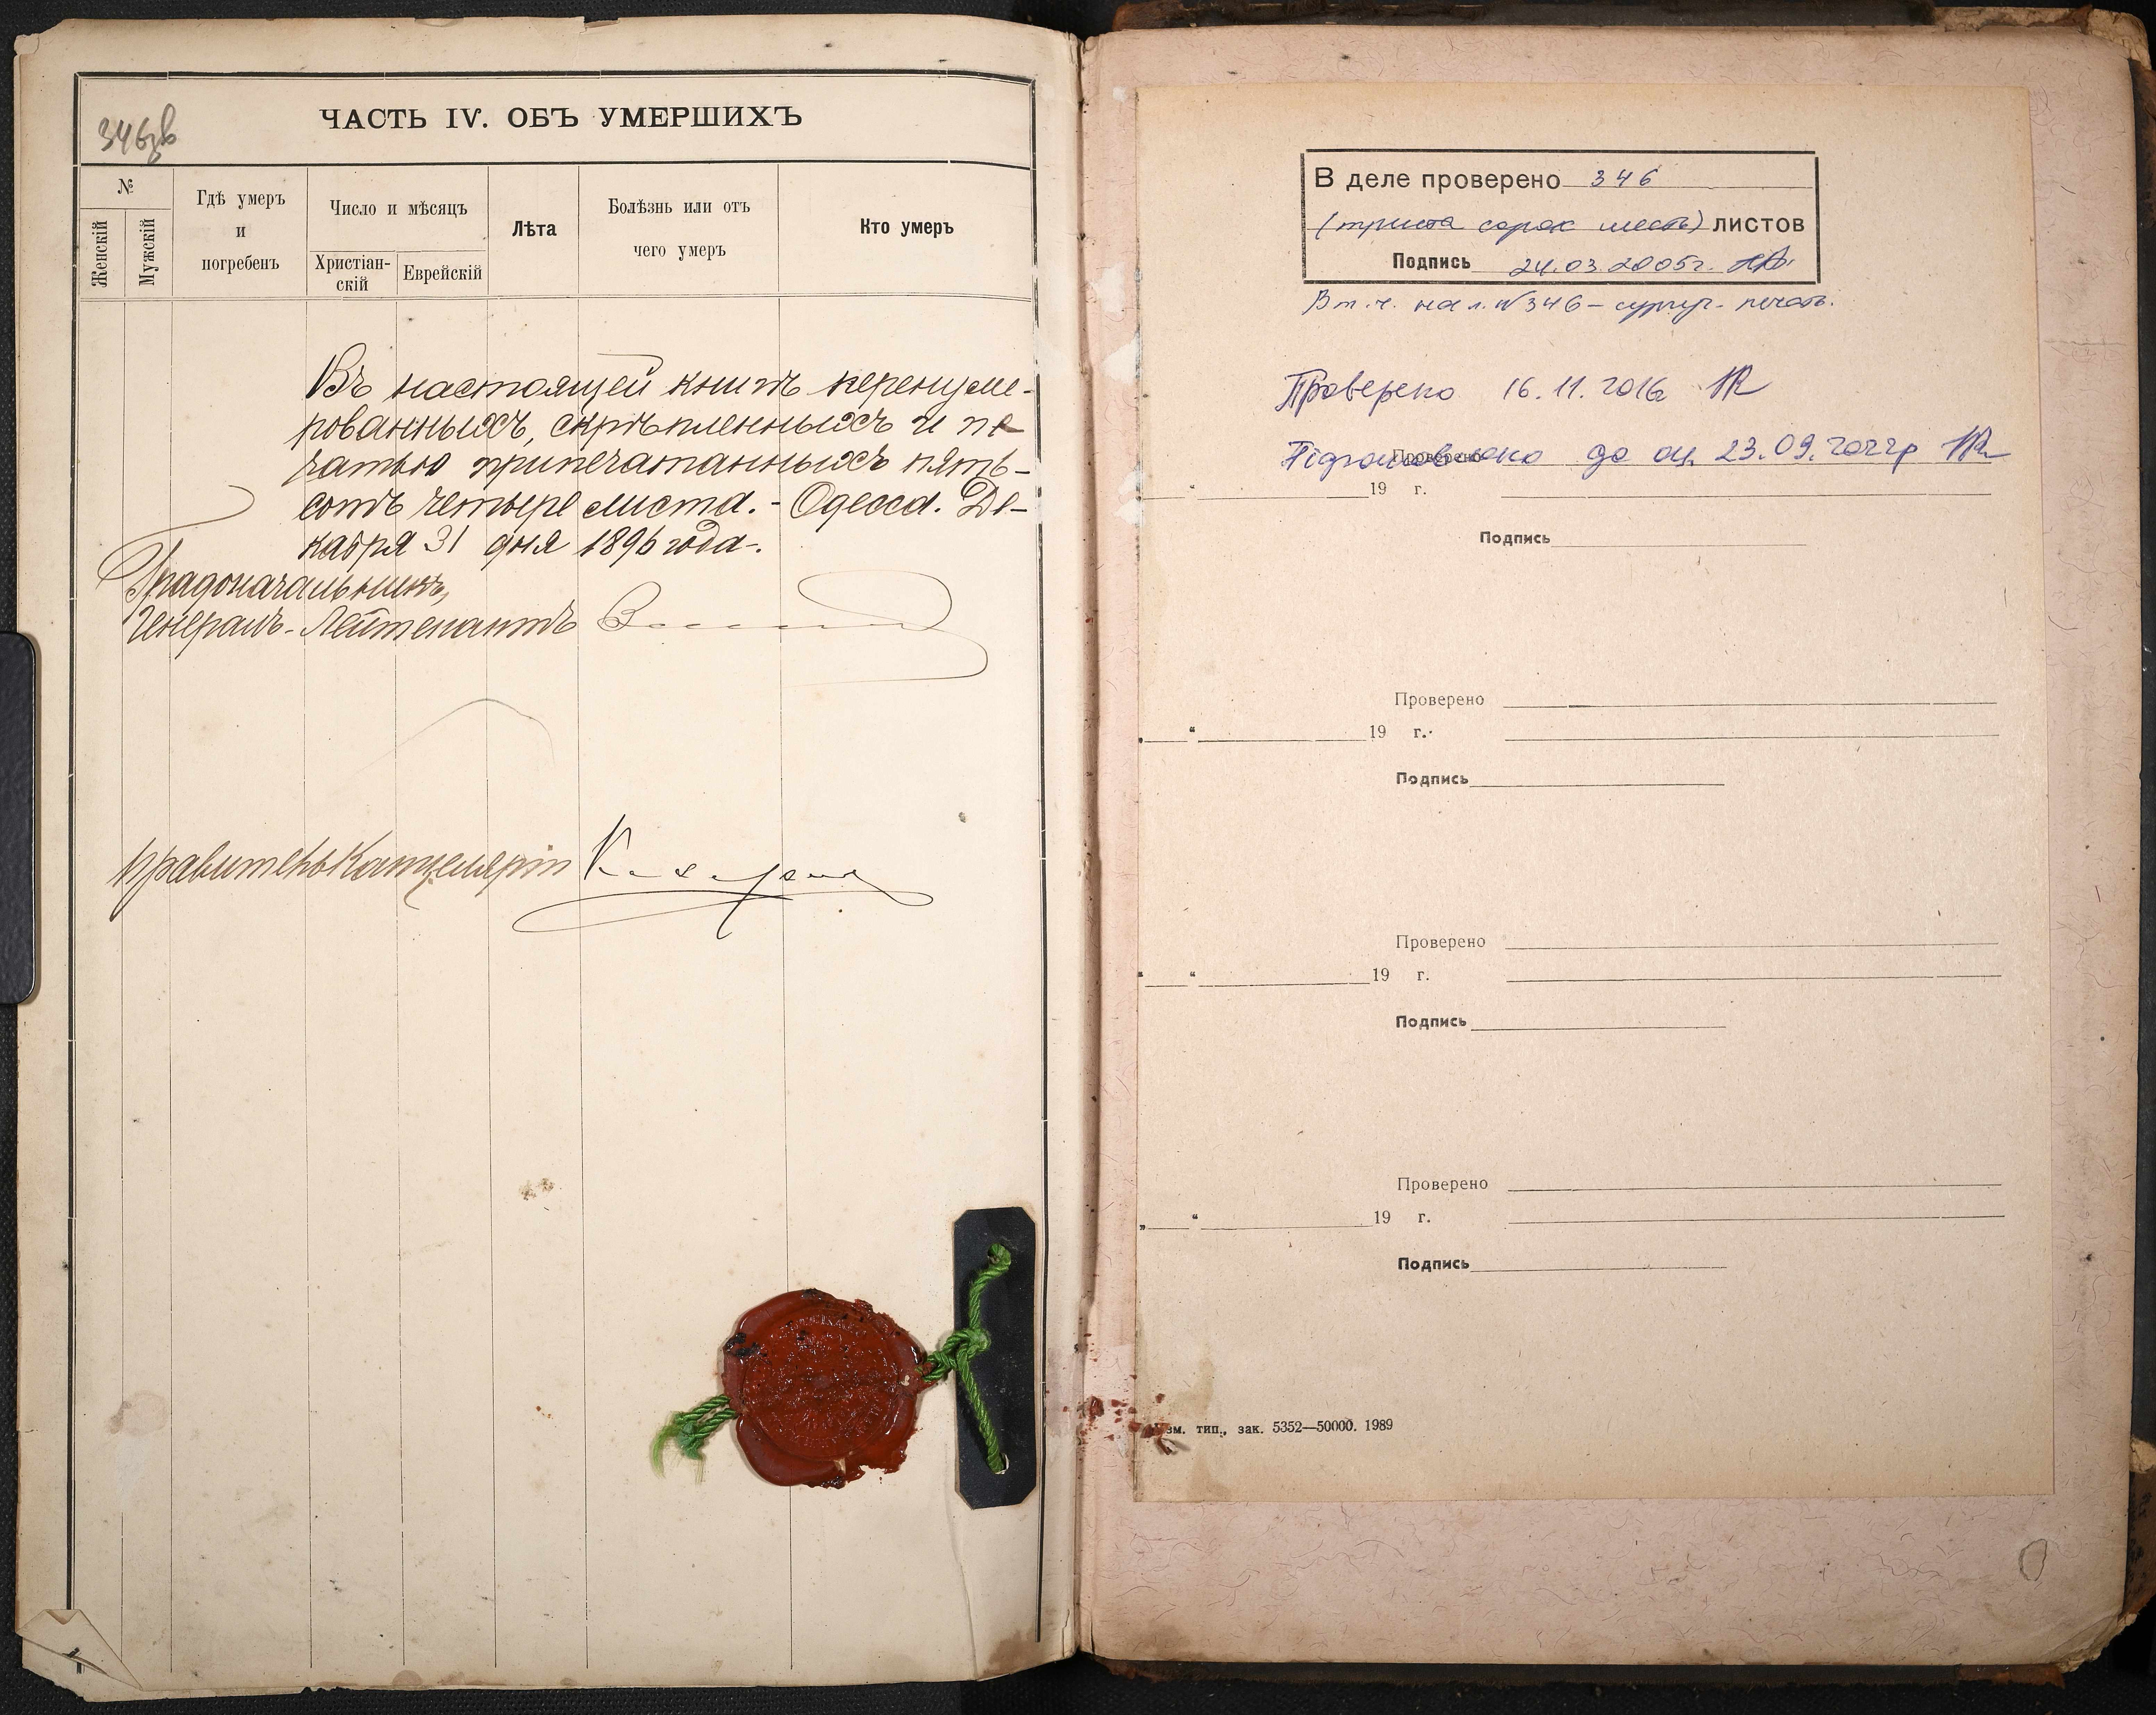 346зв
ЧАСТЬ IV. ОБЪ УМЕРШИХЪ
№
Женскій
Мужскій
Гдѣ умеръ
и
погребенъ
Число и мѣсяцъ
Христіан-
скій
Еврейскій
Лѣта
Болѣзнь или отъ
чего умеръ
Кто умеръ
Въ настоящей книгѣ перенуме-
рованныхъ, скрѣпленныхъ и пе
чатью припечатанныхъ пять-
сотъ четыре листа. - Одесса. Де-
кабря 31 дня 1896 года.
Градоначальникъ,
Генералъ-Лейтенантъ
Правитель Канцеляріи
В деле проверено 346
(триста сорок шесть) листов
Подпись 24.03.2005г.
В т.ч. на л. №346 - сургуч. печать.
Проверено 16.11.2016
Проверено
до оц. 23.09.2022р
" 19 г.
Подпись
Проверено
„ " 19 г.
Подпись
Проверено
" " 19 г.
Подпись
Проверено
„ " 19 г.
Подпись
Изм. тип., зак. 5352—50000. 1989